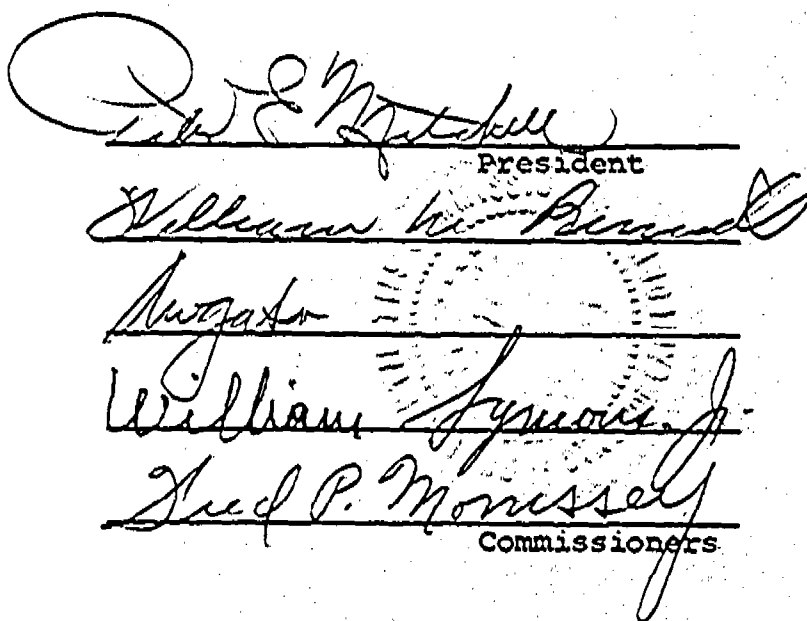 Peter E Mitchell
President
William M. Bennett
William Symons, Jr.
Fred P. Morrissey
Commissioners